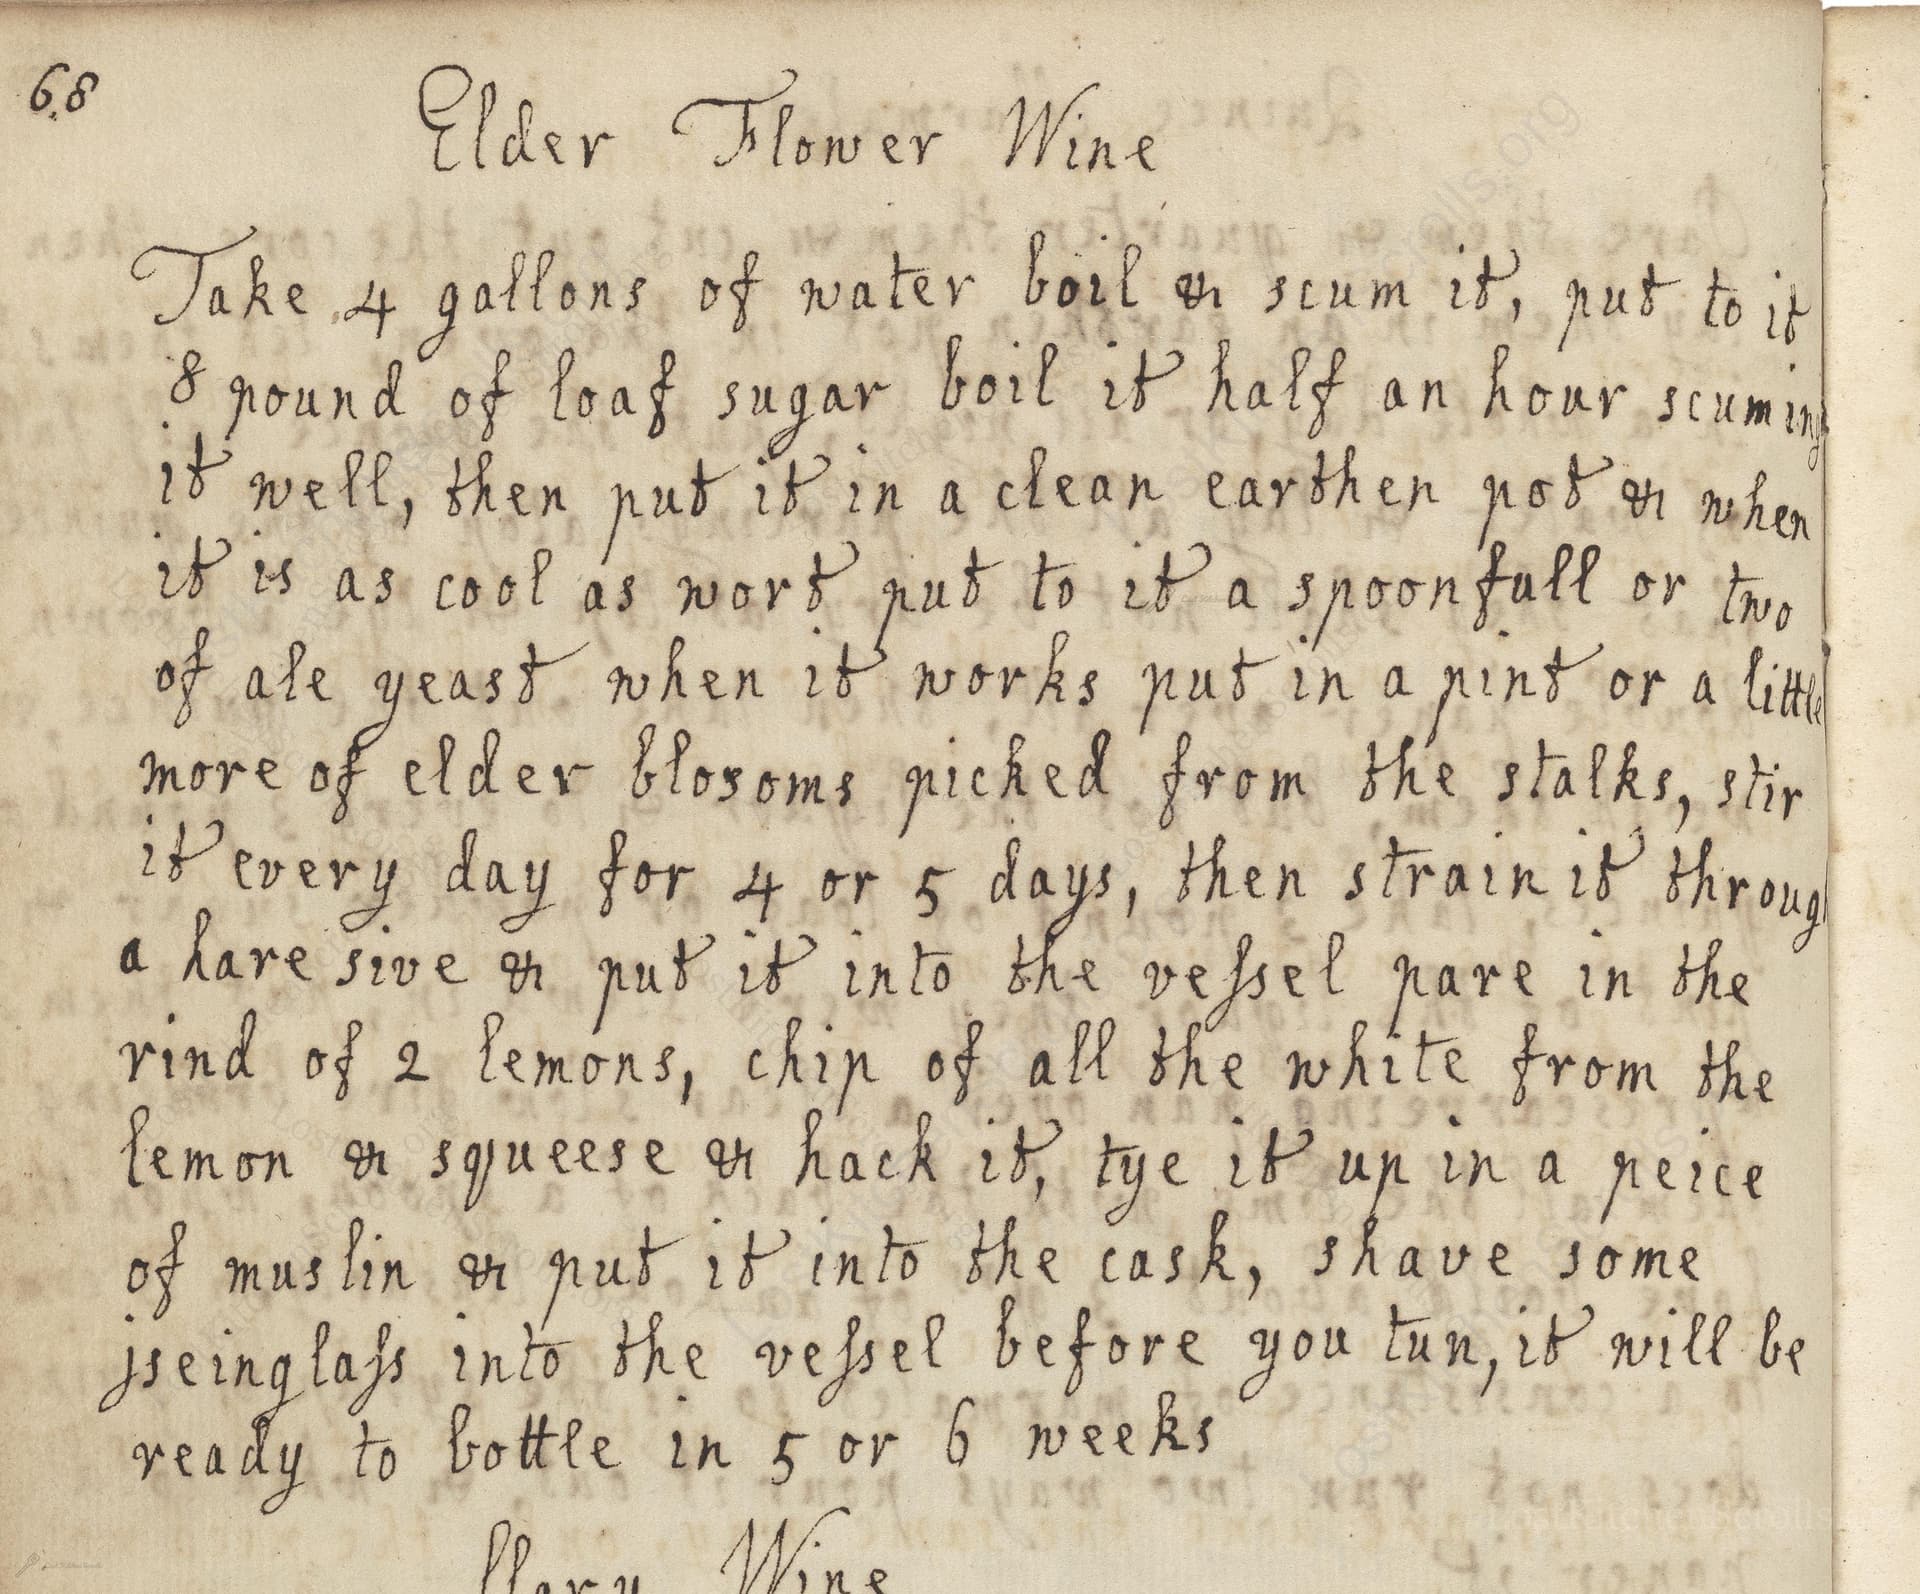 68
Elder Flower Wine
Take 4 gallons of water boil & scum it, put to it
8 pound of loaf sugar boil it half an hour scuming
it well, then put it in a clean earthen pot & when
it is as cool as wort put to it a spoonfull or two
of ale yeast when it works put in a pint or a little
more of elder blosoms picked from the stalks, stir
it every day for 4 or 5 days, then strain it through
a hare sive & put it into the veſsel pare in the
rind of 2 lemons, chip of all the white from the
lemon & squeese & hack it, tye it up in a peice
of muslin & put it into the cask, shave some
jseinglaſs into the veſsel before you tun, it will be
ready to bottle in 5 or 6 weeks
Clary Wine